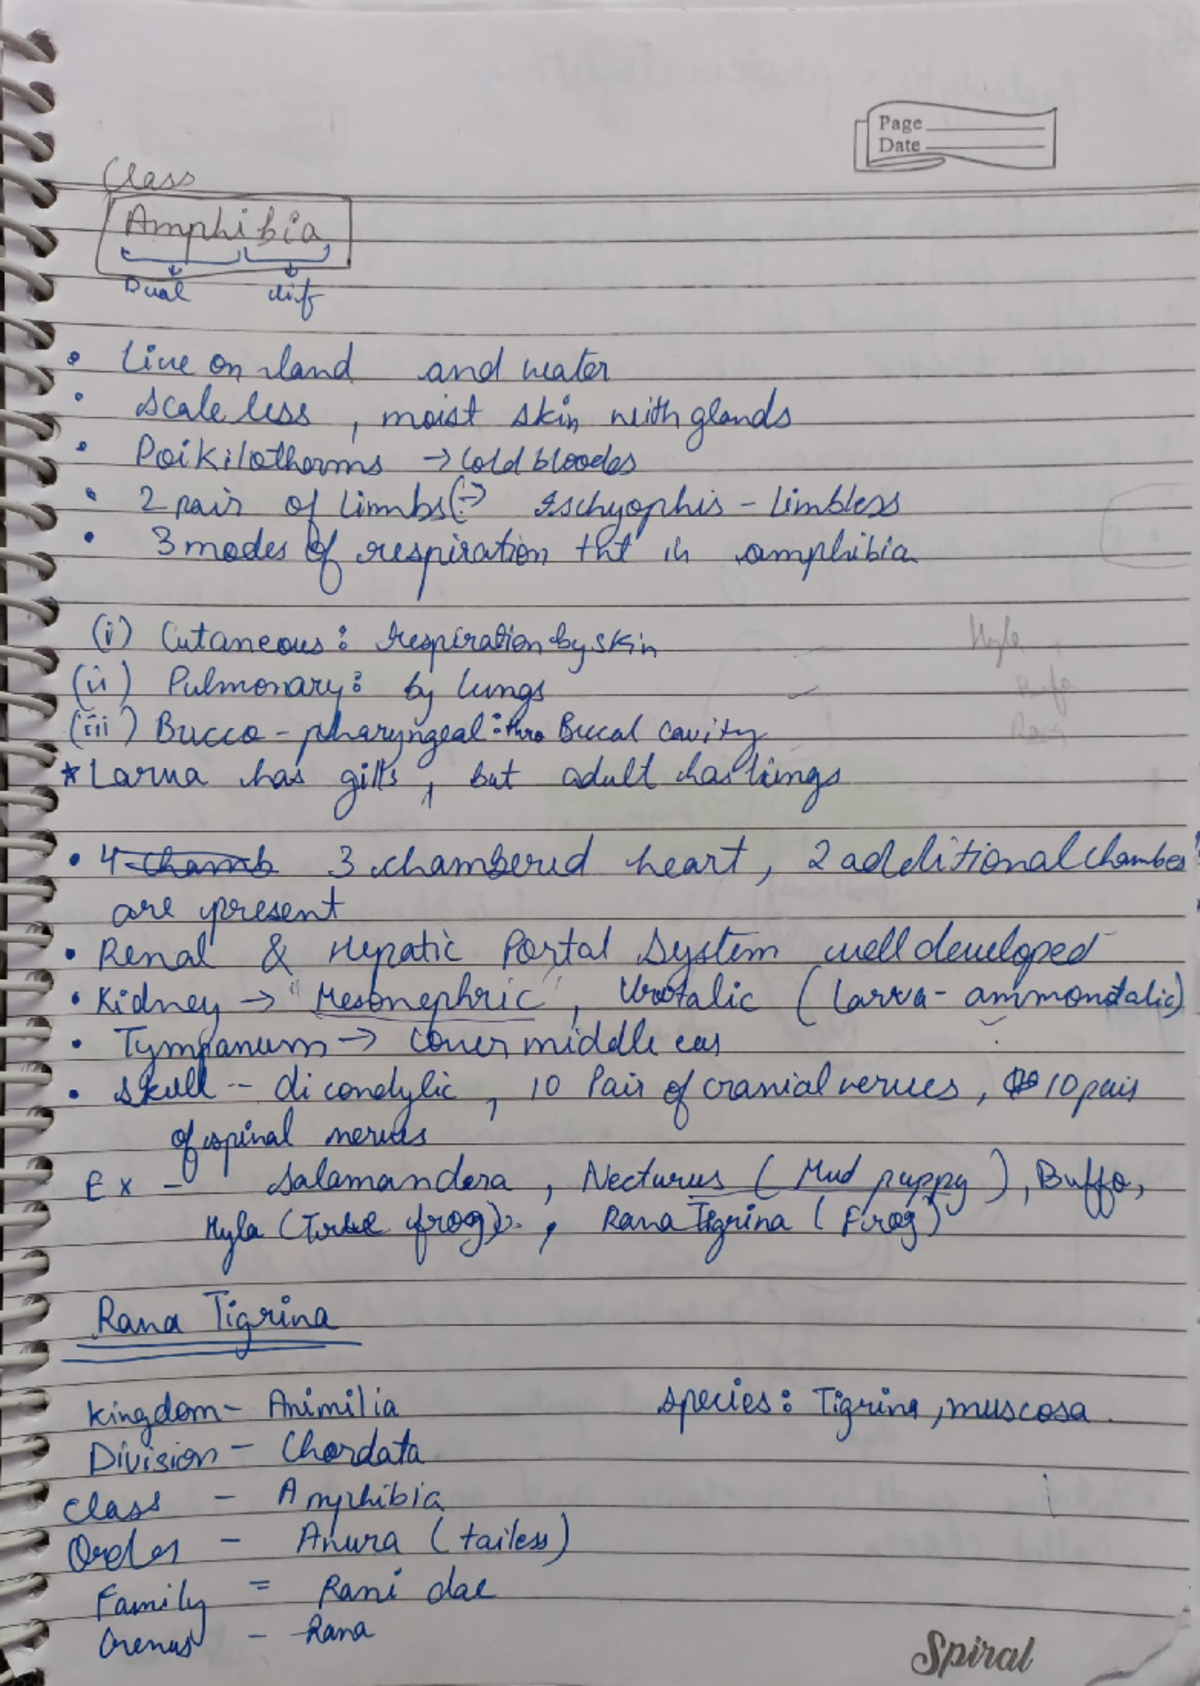 Page
Date
Class
Amphibia
Dual life
• Live on land and water
• Scale less, moist skin with glands
• Poikilotherms → cold bloodes
• 2 pair of limbs (→ Ischyophis - Limbless
• 3 modes of respiration tht in amphibia
(i) Cutaneous: respiration by skin
(ii) Pulmonary: by lungs
(iii) Bucco - pharyngeal: thro Buccal cavity
* Larva has gills, but adult has lungs
• 4 chamb 3 chambered heart, 2 additional chambers
are present
• Renal & Hepatic Portal System well developed
• Kidney → "Mesonephric", Urotalic (larva - ammonotalic)
• Tympanum → cover middle ear
• Skull - di condylic, 10 Pair of cranial nerves, 10 pair
of spinal nerves
Ex - Salamandera, Necturus (Mud puppy), Buffo,
Hyla (Tree frog), Rana Tigrina (Frog)
Rana Tigrina
Kingdom - Animilia
species: Tigrina, muscosa.
Division - Chordata
Class - Amphibia
Order - Anura (tailess)
Family = Rani dae
Genus - Rana
Spiral